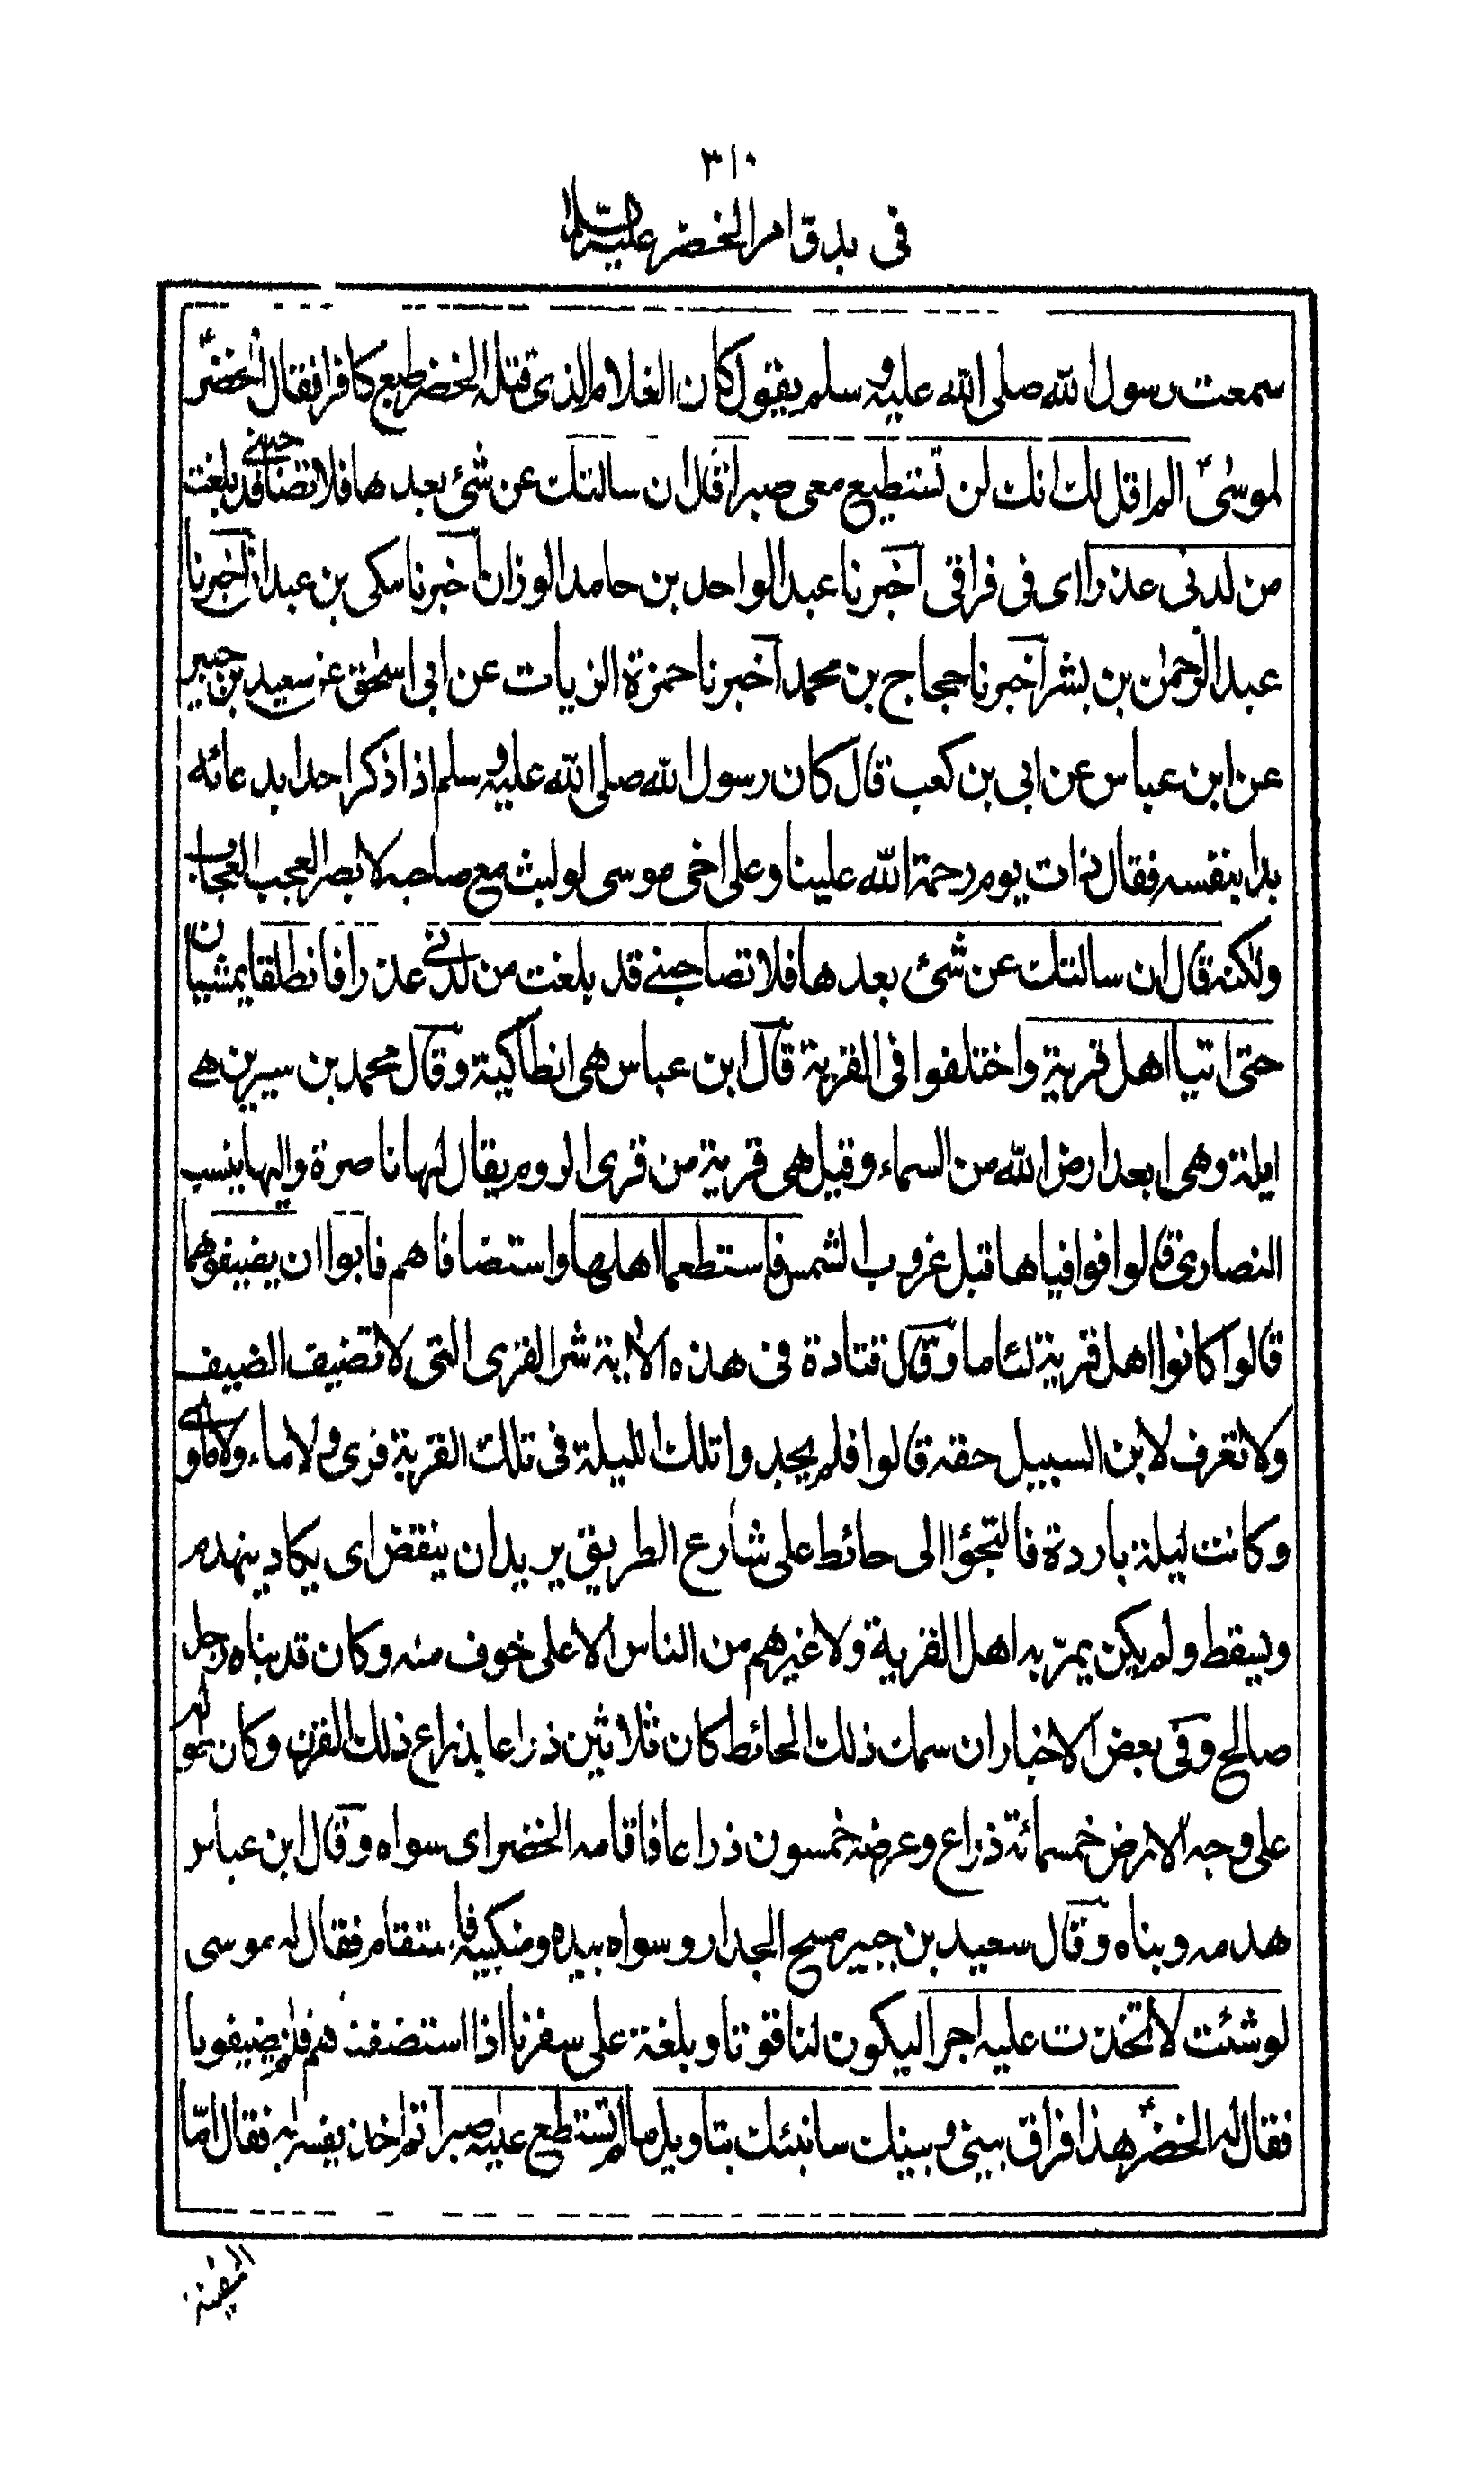 ٣١٠
فى بدؤ امر الخضر عليه السلام
سمعت رسول الله صلى الله عليه وسلم يقول كان الغلام الذى قتله الخضر طبع كافرا فقال الخضرؑ
لموسىؑ الم اقل لك انك لن تستطيع معى صبرا قال ان سالتك عن شئ بعدها فلا تصاحبنے قد بلغت
من لدنى عذرا اى فى فراقى اخبرنا عبد الواحد بن حامد الوزان اخبرنا مكى بن عبدان اخبرنا
عبد الرحمٰن بن بشر اخبرنا حجاج بن محمد اخبرنا حمزة الزيات عن ابى اسحٰق عن سعيد بن جبير
عن ابن عباس عن ابى بن كعب قال كان رسول الله صلى الله عليه وسلم اذا ذكر احدا بدعائه
بدا بنفسه فقال ذات يوم رحمة الله علينا وعلى اخى موسى لو لبث مع صاحبه لابصر العجب العجاب
ولكنه قال ان سالتك عن شئ بعدها فلا تصاحبنے قد بلغت من لدنے عذرا فانطلقا يمشيان
حتى اتيا اهل قرية واختلفوا فى القرية قال ابن عباس هى انطاكية وقال محمد بن سيرين هے
ايلة وهى ابعد ارض الله من السماء وقيل هى قرية من قرى الروم يقال لها ناصرة واليها ينسب
النصارى قالوا فوافياها قبل غروب الشمس فاستطعما اهلها واستضافاهم فابوا ان يضيفوهما
قالوا كانوا اهل قرية لئاما وقال قتادة فى هذه الاٰية شر القرى التى لا تضيف الضيف
ولا تعرف لابن السبيل حقه قالوا فلم يجدوا تلك الليلة فى تلك القرية قرى ولا ماء ولا ماوى
وكانت ليلة باردة فالتجؤا الى حائط على شارع الطريق يريد ان ينقض اى يكاد ينهدم
ويسقط ولم يكن يمرّ به اهل القرية ولا غيرهم من الناس الا على خوف منه وكان قد بناه رجل
صالح وفى بعض الاخبار ان سمك ذلك الحائط كان ثلاثين ذراعا بذراع ذلك القرن وكان طوله
على وجه الارض خمسمائة ذراع وعرضه خمسون ذراعا فاقامه الخضر اى سواه وقال ابن عباس
هدمه وبناه وقال سعيد بن جبير مسح الجدار وسواه بيده ومنكبيه فاستقام فقال له موسى
لو شئت لاتخذت عليه اجرا ليكون لنا قوتا وبلغة على سفرنا اذا استضفناهم فلم يضيفونا
فقال له الخضرؑ هذا فراق بينى وبينك سانبئك بتاويل ما لم تستطع عليه صبرا ثم اخذ يفسر له فقال امّا
السفينة